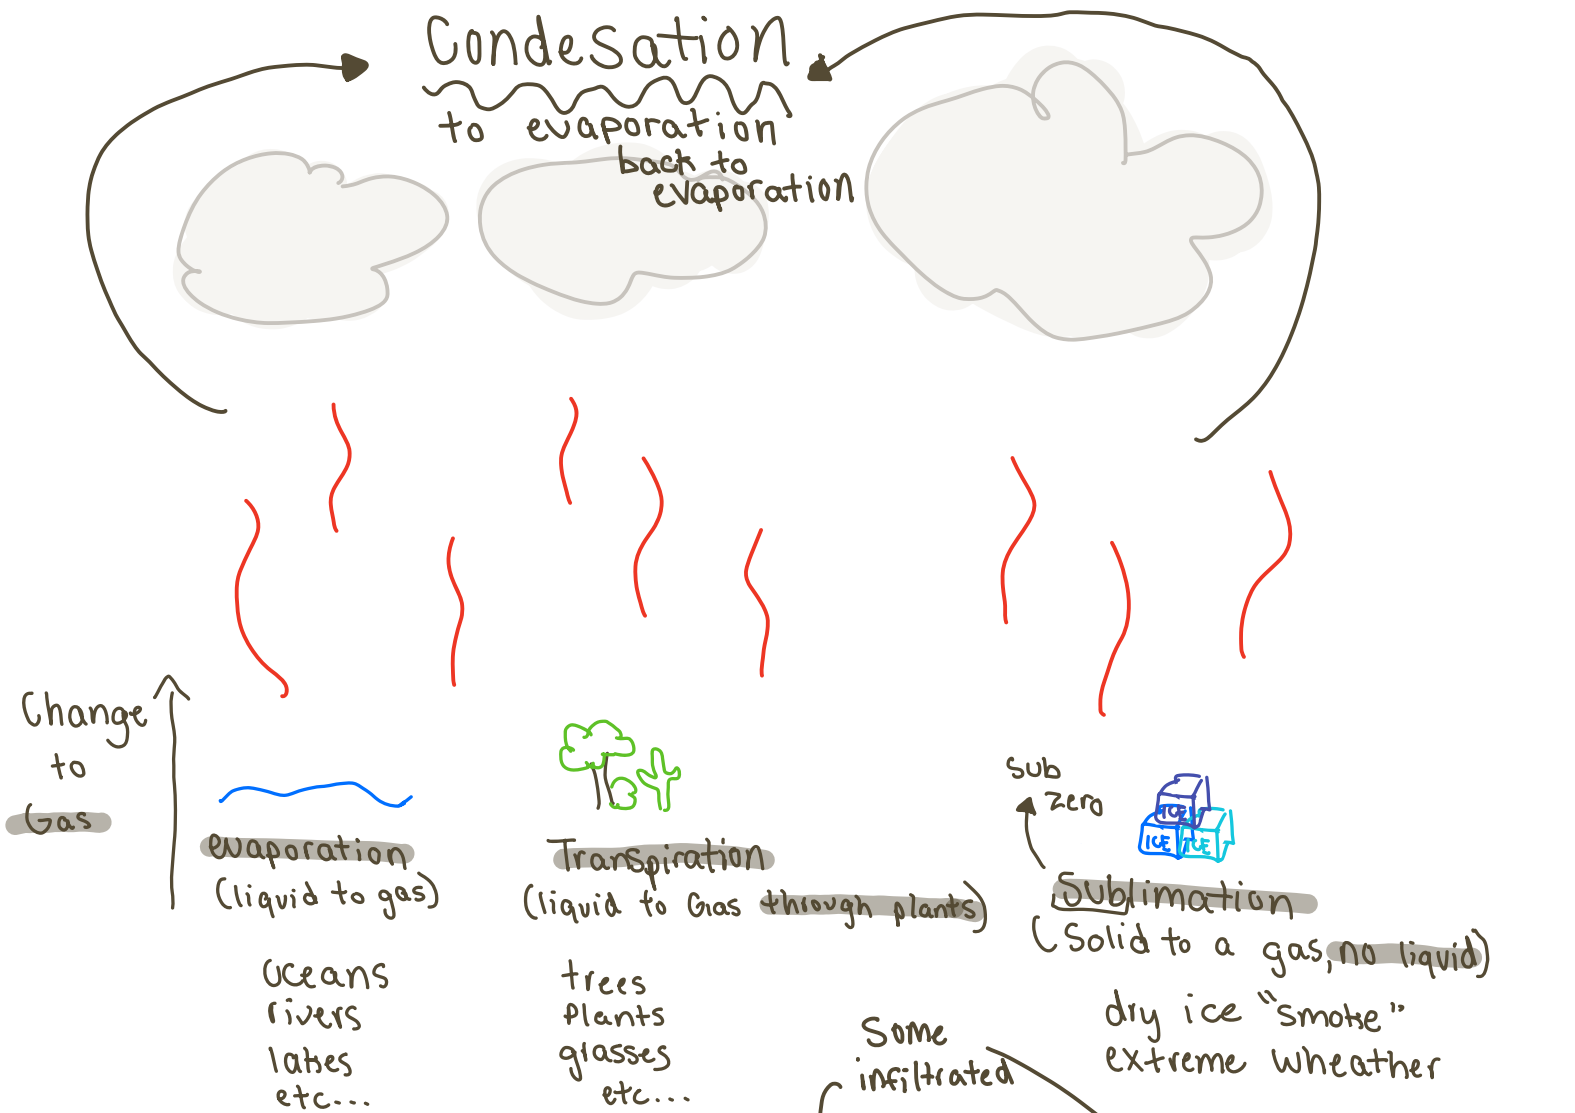 Condesation
to evaporation
back to
evaporation
Change
to
Gas
evaporation
(liquid to gas)
oceans
rivers
lakes
etc...
Transpiration
(liquid to Gas through plants)
trees
plants
grasses
etc...
sub
zero
ICE
ICE
ICE
Sublimation
(Solid to a gas, no liquid)
dry ice "smoke"
extreme wheather
Some
infiltrated